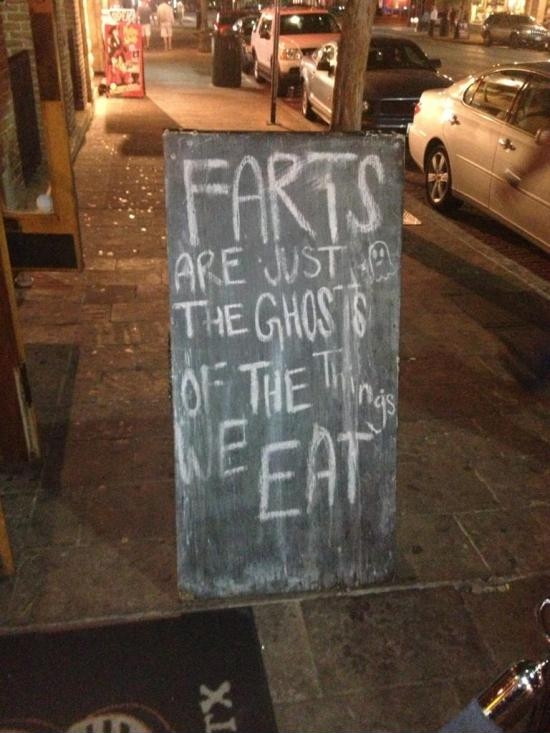 FARTS
ARE JUST
THE GHOSTS
OF THE THings
WE EAT
TX